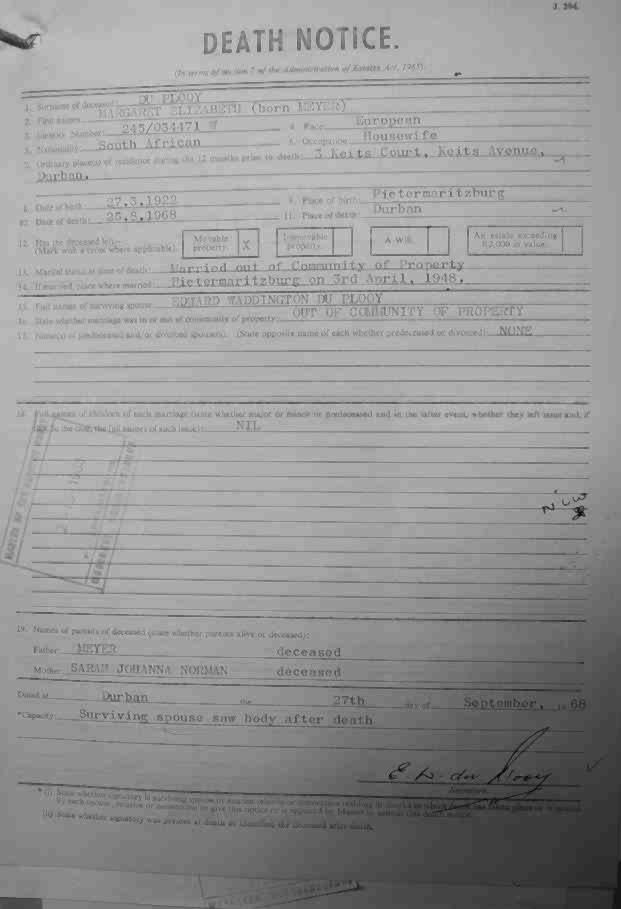 J. 294.
DEATH NOTICE.
(In terms of section 7 of the Administration of Estates Act, 1965).
1. Surname of deceased: DU PLOOY
2. First names MARGARET ELIZABETH (born MEYER)
3. Identity Number: 245/034471 W 4. Race: European
5. Nationality: South African 6. Occupation: Housewife
7. Ordinary place(s) of residence during the 12 months prior to death: 3 Keits Court, Keits Avenue,
Durban.
8. Date of birth: 27.3.1922 9. Place of birth: Pietermaritzburg
10. Date of death: 25.8.1968 11. Place of death: Durban
12. Has the deceased left— Movable Immovable A Will. An estate exceeding
(Mark with a cross where applicable) property. X property. R2,000 in value.
13. Marital status at time of death: Married out of Community of Property
14. If married, place where married: Pietermaritzburg on 3rd April, 1948.
15. Full names of surviving spouse: EDWARD WADDINGTON DU PLOOY
16. State whether marriage was in or out of community of property: OUT OF COMMUNITY OF PROPERTY
17. Name(s) of predeceased and/or divorced spouse(s). (State opposite name of each whether predeceased or divorced): NONE
18. Full names of children of each marriage (state whether major or minor or predeceased and in the latter event, whether they left issue and, if
such be the case, the full names of such issue): NIL
19. Names of parents of deceased (state whether parents alive or deceased):
Father: MEYER deceased
Mother: SARAH JOHANNA NORMAN deceased
Dated at Durban the 27th day of September, 1968
*Capacity: Surviving spouse saw body after death
E. W. du Plooy
Signature.
(ii) State whether signatory was present at death or identified the deceased after death.